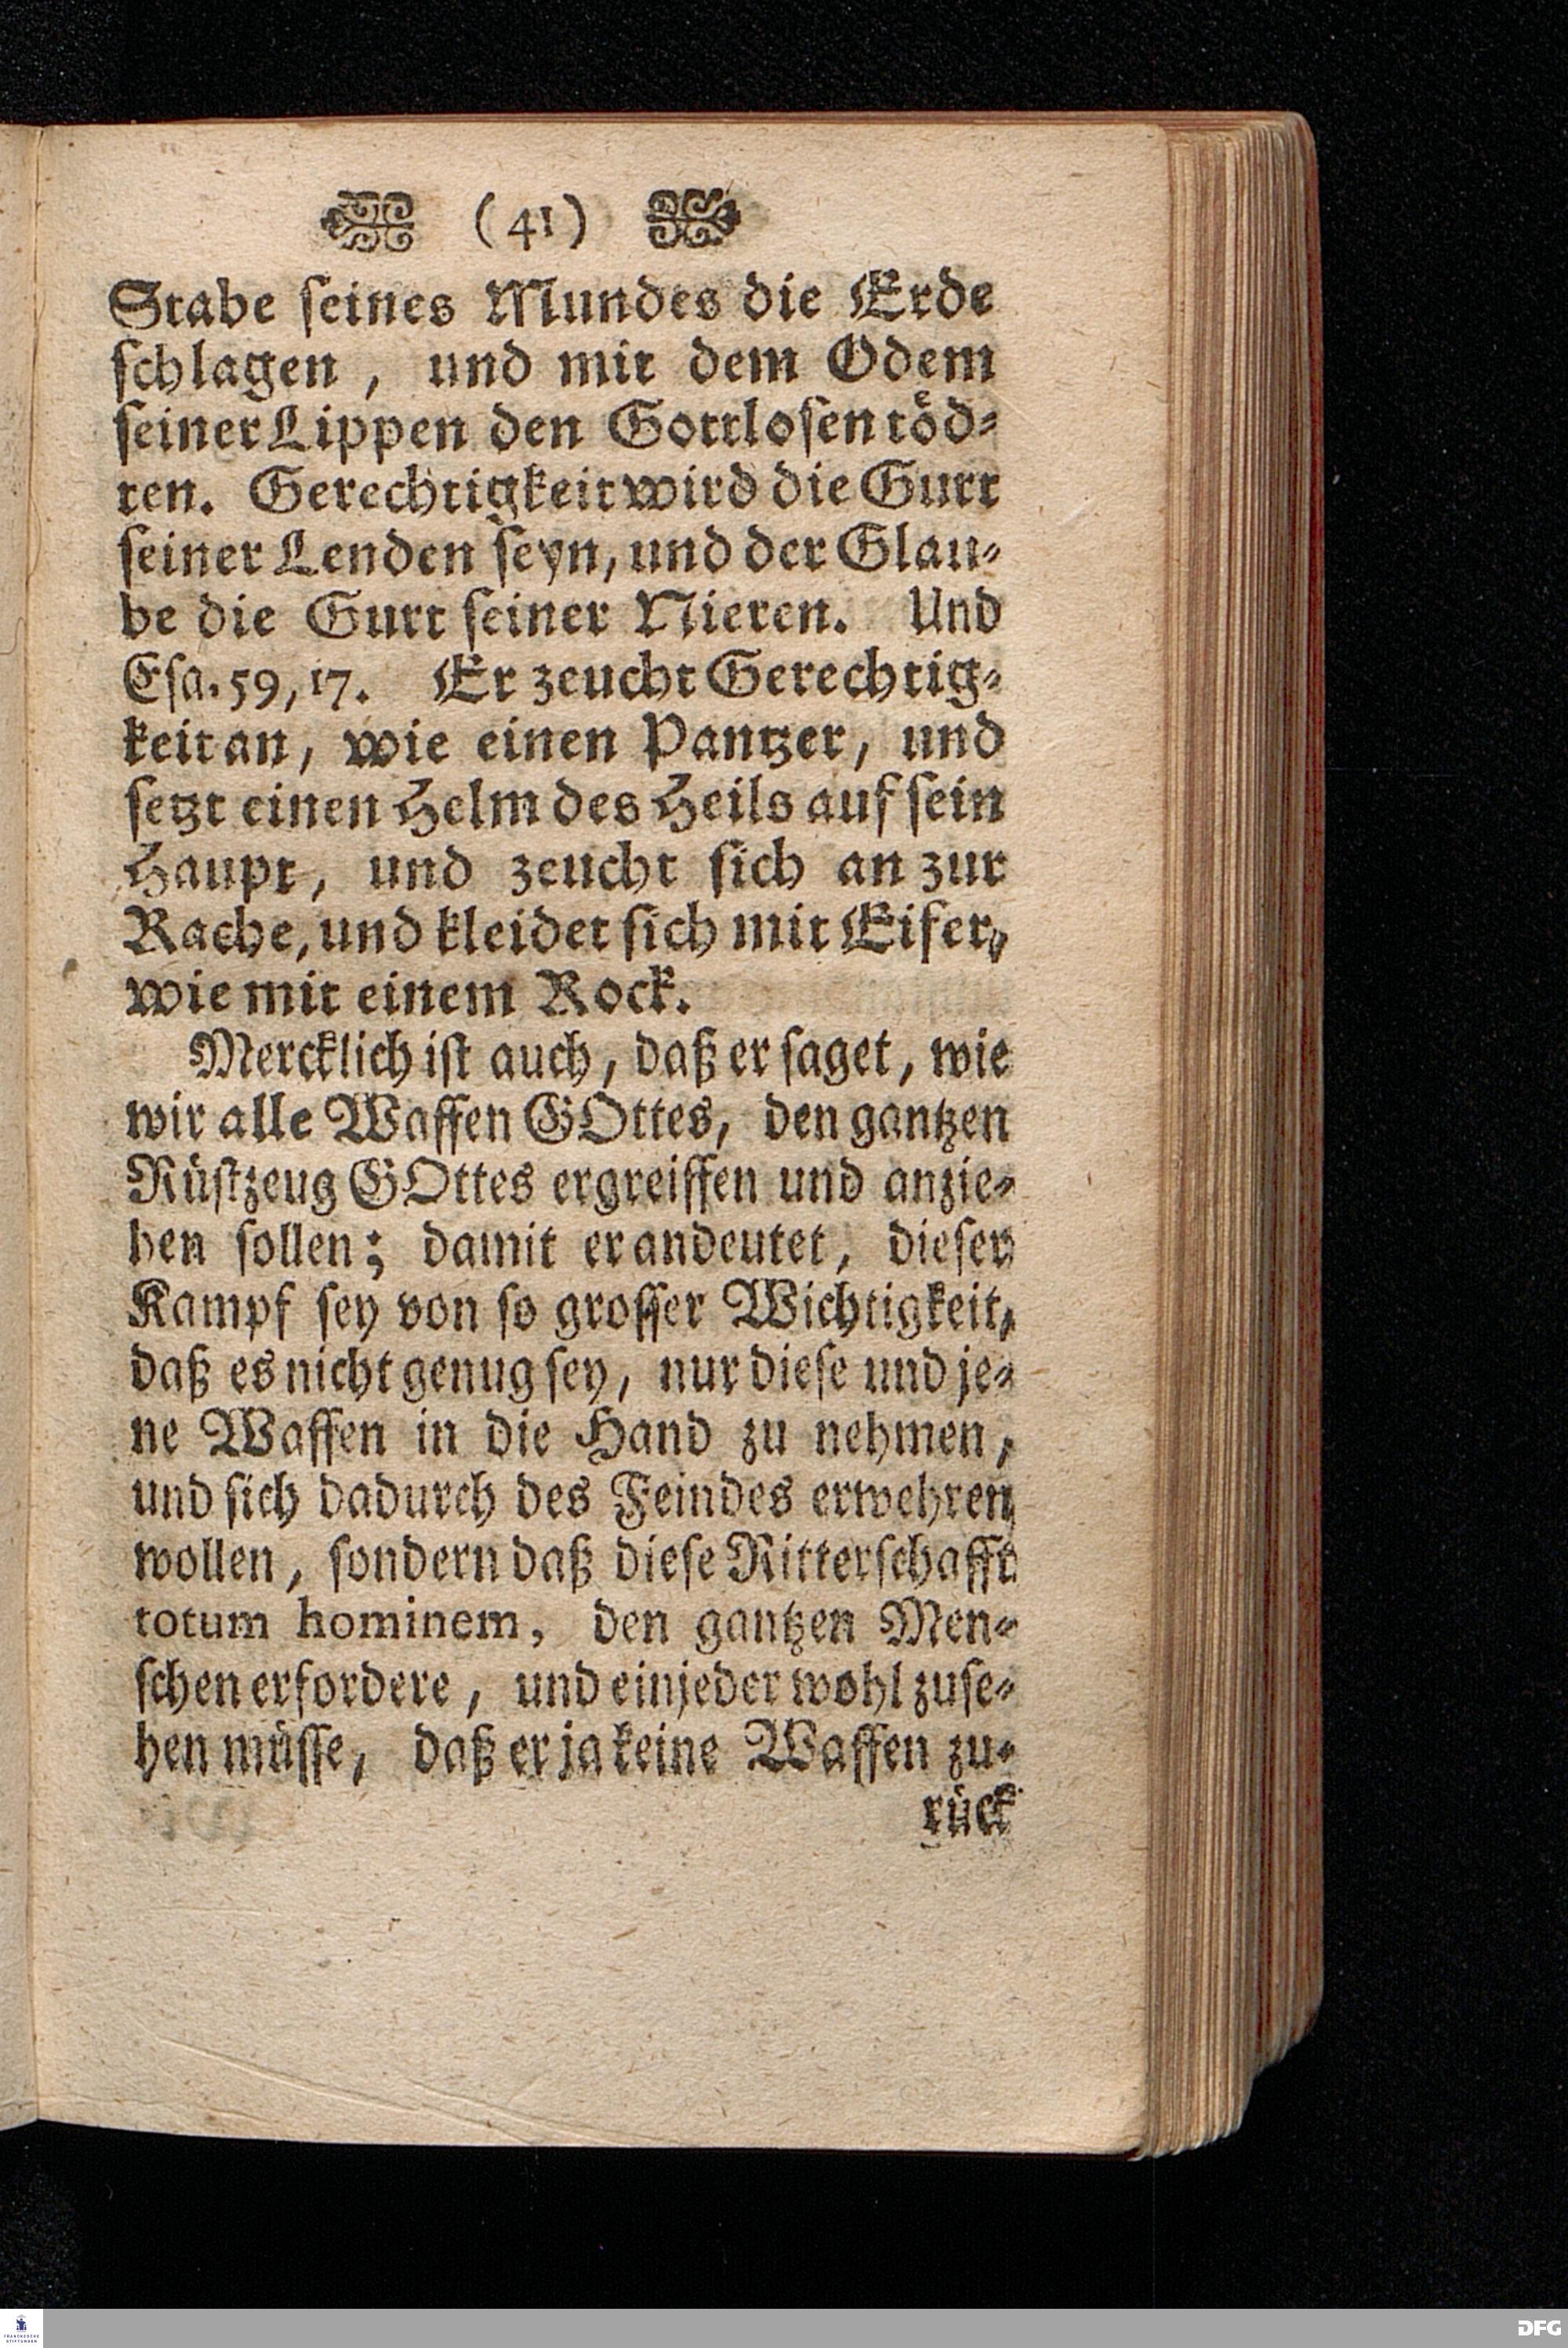 (41)
Stabe seines Mundes die Erde
schlagen, und mit dem Odem
seiner Lippen den Gottlosen töd-
ten. Gerechtigkeit wird die Gurt
seiner Lenden seyn, und der Glau-
be die Gurt seiner Nieren. Und
Esa. 59, 17. Er zeucht Gerechtig-
keit an, wie einen Pantzer, und
setzt einen Helm des Heils auf sein
Haupt, und zeucht sich an zur
Rache, und kleidet sich mit Eifer,
wie mit einem Rock.
Mercklich ist auch, daß er saget, wie
wir alle Waffen GOttes, den gantzen
Rüstzeug GOttes ergreiffen und anzie-
hen sollen; damit er andeutet, dieser
Kampf sey von so grosser Wichtigkeit,
daß es nicht genug sey, nur diese und je-
ne Waffen in die Hand zu nehmen,
und sich dadurch des Feindes erwehren
wollen, sondern daß diese Ritterschafft
totum hominem, den gantzen Men-
schen erfordere, und ein jeder wohl zuse-
hen müsse, daß er ja keine Waffen zu-
rück
FRANCKESCHE
STIFTUNGEN
DFG